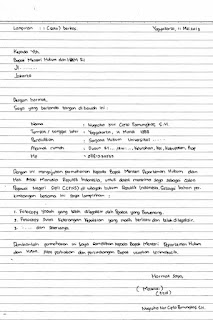 Lampiran : 1 (satu) berkas Yogyakarta, 11 Mei 2019
Kepada Yth.
Bapak Menteri Hukum dan HAM RI
Jl.
Jakarta
Dengan hormat,
Saya yang bertanda tangan di bawah ini :
Nama : Nugraha Nur Cipto Pamungkas, S.H.
Tempat / tanggal lahir : Yogyakarta, 11 Maret
Pendidikan : Sarjana Hukum Universitas
Alamat rumah :
Hp :
Dengan ini mengajukan permohonan kepada Bapak Menteri Departemen Hukum dan
Hak Asasi Manusia Republik Indonesia, untuk dapat menerima saya sebagai Calon
Pegawai Negeri Sipil (CPNS) di wilayah hukum Republik Indonesia. Sebagai bahan per-
timbangan bersama ini saya lampirkan :
1. Fotocopy Ijazah yang telah dilegalisir oleh Pejabat yang berwenang.
2. Fotocopy Surat Keterangan Kepolisian yang masih berlaku dan telah dilegalisir.
3. dan seterusnya.
Demikianlah permohonan ini saya sampaikan kepada Bapak Menteri Departemen Hukum
dan HAM. Atas perhatian dan pertimbangan Bapak ucapkan terimakasih.
Hormat Saya,
(Meterai)
(ttd)
Nugraha Nur Cipto Pamungkas, S.H.